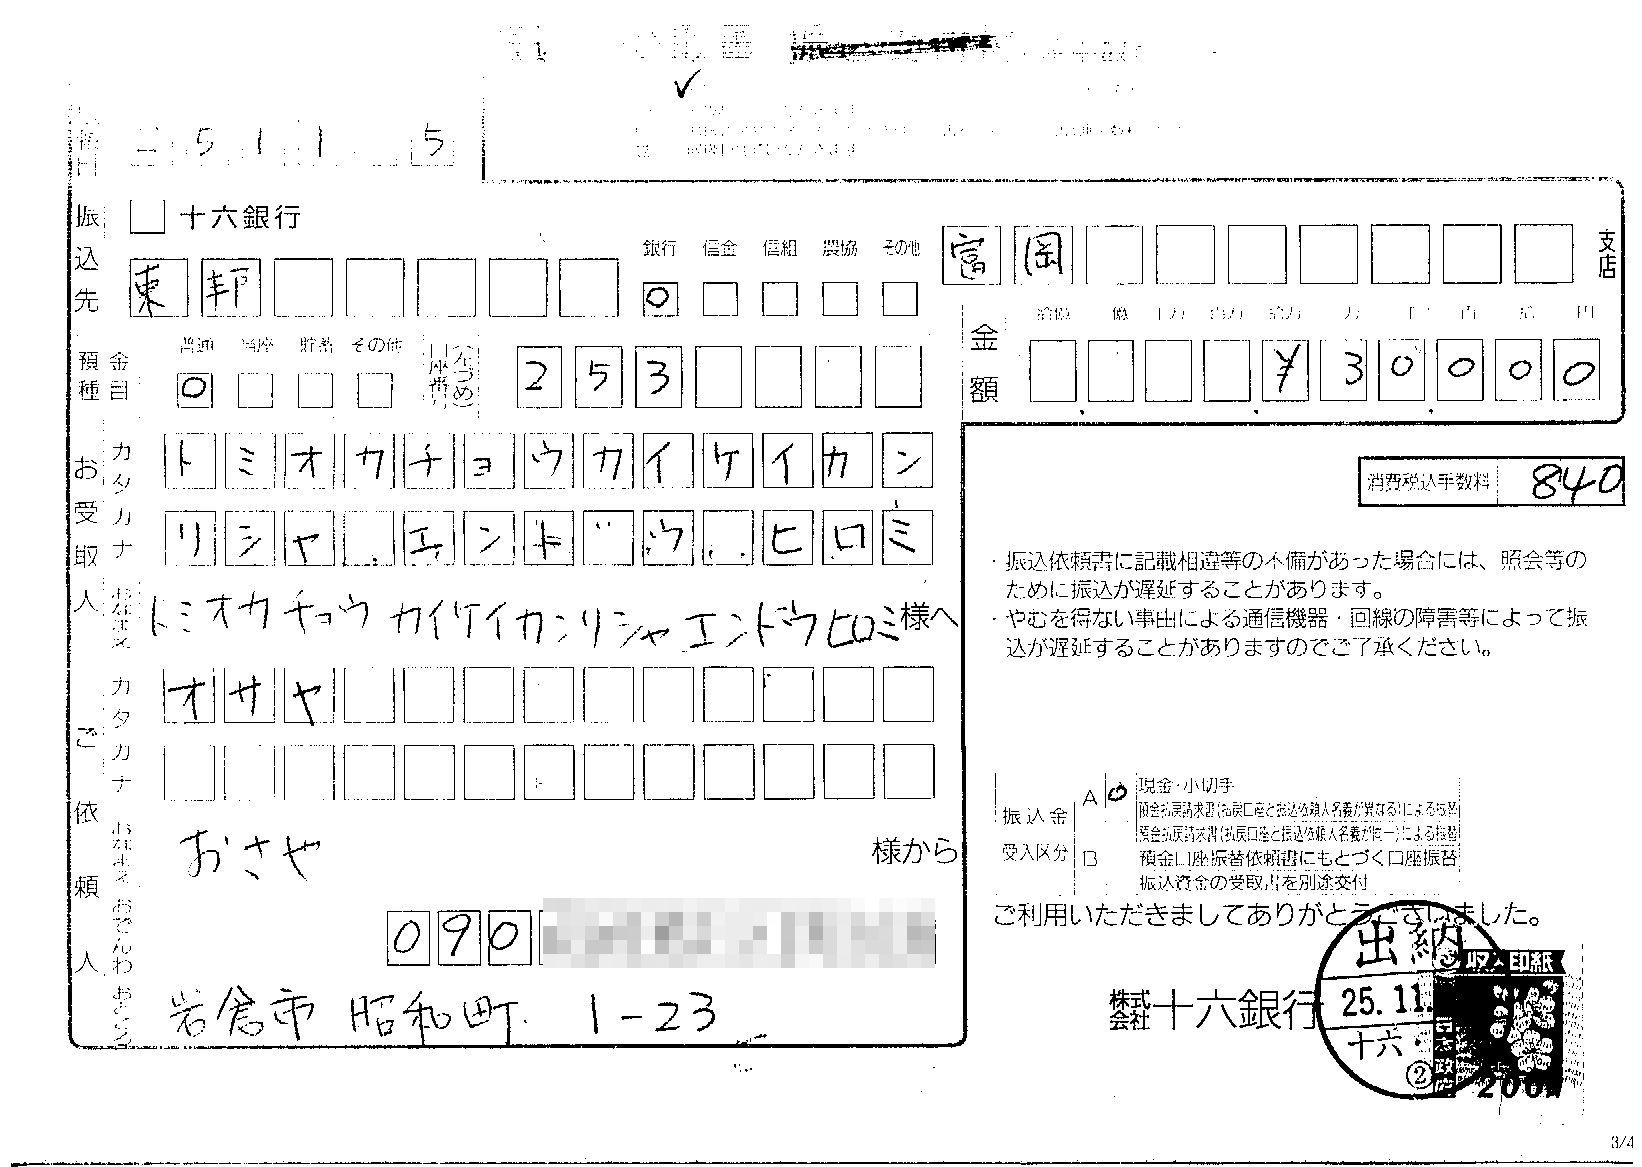 5 1 1 5
振込先
十六銀行
東邦
銀行 信金 信組 農協 その他
富岡
支店
預金種目
普通 当座 貯蓄 その他
口座番号
(左づめ)
253
金額
拾億 億 千万 百万 拾万 万 千 百 拾 円
¥30000
お受取人
カタカナ
トミオカチョウカイケイカン
リシャ エンドウ ヒロミ
消費税込手数料 840
・振込依頼書に記載相違等の不備があった場合には、照会等の
ために振込が遅延することがあります。
・やむを得ない事由による通信機器・回線の障害等によって振
込が遅延することがありますのでご了承ください。
おなまえ
トミオカチョウ カイケイカンリシャ エンドウ ヒロミ様へ
ご依頼人
カタカナ
オサヤ
おなまえ
おさや 様から
おでんわ
090
おところ
岩倉市 昭和町 1-23
振込金
受入区分
A 現金・小切手
預金払戻請求書(払戻口座と振込依頼人名義が異なる)による振替
預金払戻請求書(払戻口座と振込依頼人名義が同一)による振替
B 預金口座振替依頼書にもとづく口座振替
振込資金の受取書を別途交付
ご利用いただきましてありがとうございました。
株式会社十六銀行
出納
25.11.
十六・
②
収入印紙
日本政府
200円
3/4